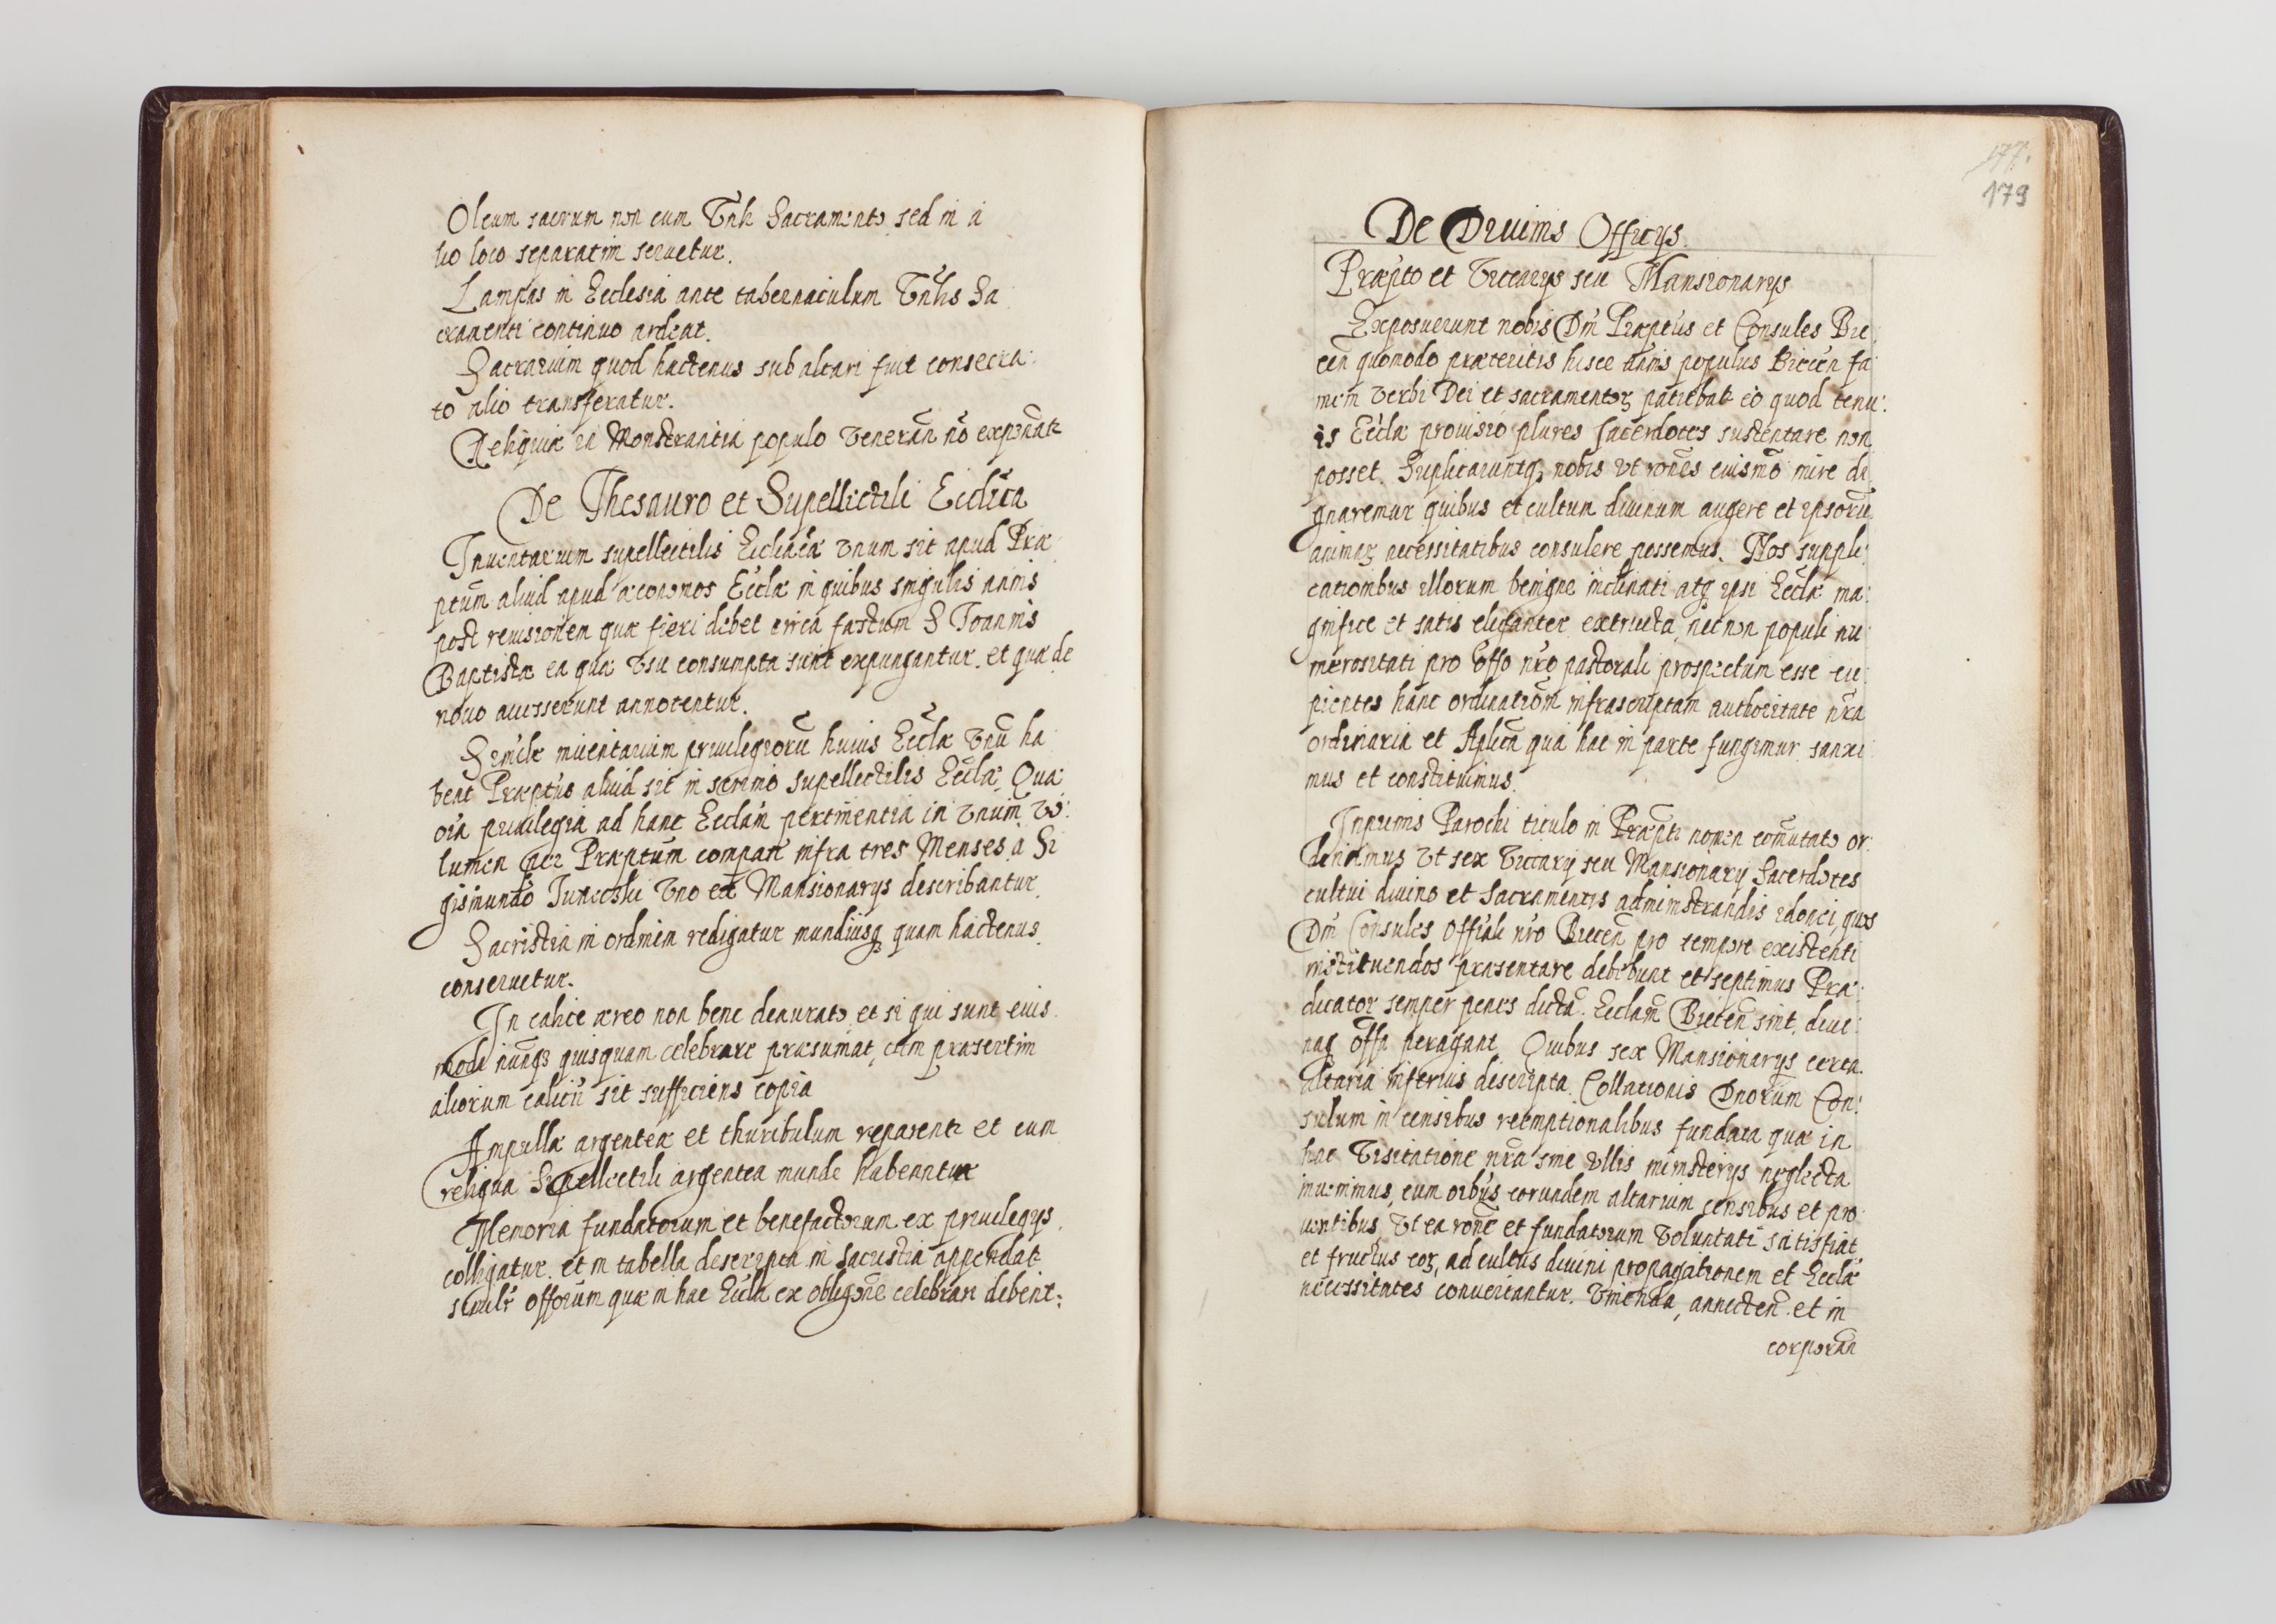 Oleum sacrum non cum Vnli Sacramento sed in a
lio loco separatim seruetur.
Lampas in Ecclesia ante tabernaculum Vnlis Sa
cramenti continuo ardeat.
Sacrarium quod hactenus sub altari fuit consecra:
to alio transferatur.
Reliquiæ in Monstrantia populo venerañ nõ exponãtr
De Thesauro et Supellictili Eccliča
Inuentarium supellectilis Eccliačæ vnum sit apud Præ
ptum aliud apud œconomos Ecclæ in quibus singulis annis
post reuisionem quæ fieri debet circa fæstum S Joannis
Baptistæ ea quæ vsu consumpta sunt expungantur. et quæ de
nouo accesserunt annotentur.
Simile inuentarium priuilegiorũ huius Ecclæ vnũ ha
beat Præptus aliud sit in scrinio supellectilis Ecclæ, Quæ
oĩa priuilegia ad hanc Ecclam pertinentia in vnum vo:
lumen per Præptum comparañ infra tres Menses à Si
gismundo vno ex Mansionarys describantur.
Sacristia in ordinem redigatur mundiusq quam hactenus
conseruetur.
In calice æreo non bene deaurato et si qui sunt eius
modi nunq quisquam celebrare præsumat, cum præsertim
aliorum calicũ sit sufficiens copia
Ampullæ argenteæ et thuribulum reparentr et cum
reliqua Supellectili argentea munde habeantur
Memoria fundatorum et benefactorum ex priuilegys
colligatur et in tabella descripta in sacristia appendatr
simili offorum quæ in hac Eccla ex obligõne celebrari debent:
177.
179
De Diuinis Officys.
Præpto et Viccarys seu Mansionarys
Exposuerunt nobis Dni Præptus et Consules Bie
ceñ quomodo præteritis hisce annis populus Bieceñ fa
mem verbi Dei et sacramentor, patiebatr eò quod tenu:
is Ecclæ prouisio plures sacerdotes sustentare non
posset. Suplicaruntq, nobis vt rones euismõ inire di
gnaremur quibus et cultum diuinum augere et ipsorũ
animar, necessitatibus consulere possemus. Nos suppli:
cationibus illorum benigne inclinati atq ipsi Ecclæ ma:
gnifice et satis eleganter extructæ, necnon populi nu
merositati pro offo nro pastorali prospectum esse cu
pientes hanc ordinatiõm infrascriptam authoritate nra
ordinaria et Aplica qua hac in parte fungimur sanxi
mus et constituimus.
Inprimis Parochi titulo in Præpti nomen comutato or:
dinamus vt sex Viccarij seu Mansionarij Sacerdotes
cultui diuino et Sacramentis administrandis idonei, quos
Dni Consules Offiali nro Bieceñ pro tempore existenti
instituendos præsentare debebunt et septimus Præ:
dicator semper penes dictã Ecclam Bieceñ sint. diui:
naq offa peragant. Quibus sex Mansionarys certa
altaria inferius descripta Collationis Dnorum Con:
sulum in censibus reemptionalibus fundata quæ in
hac Visitatione nra sine vllis ministerys neglecta
inuenimus, cum oibus eorundem altarium censibus et pro
uentibus, vt ea rone et fundatorum voluntati satisfiat
et fructus eor, ad cultus diuini propagationem et Ecclæ
necessitates conuertantur. Vnienda, annecteñ et in
corporañ